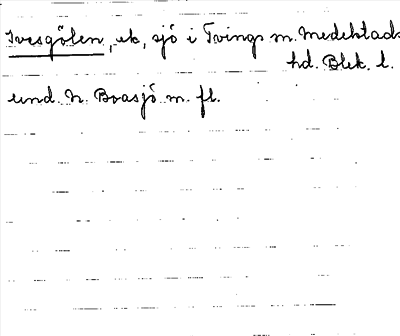 Ivesgölen, ek, sjö i Tvings sn. Medelstads
hd. Blek. l.
und. N. Brasjö m. fl.